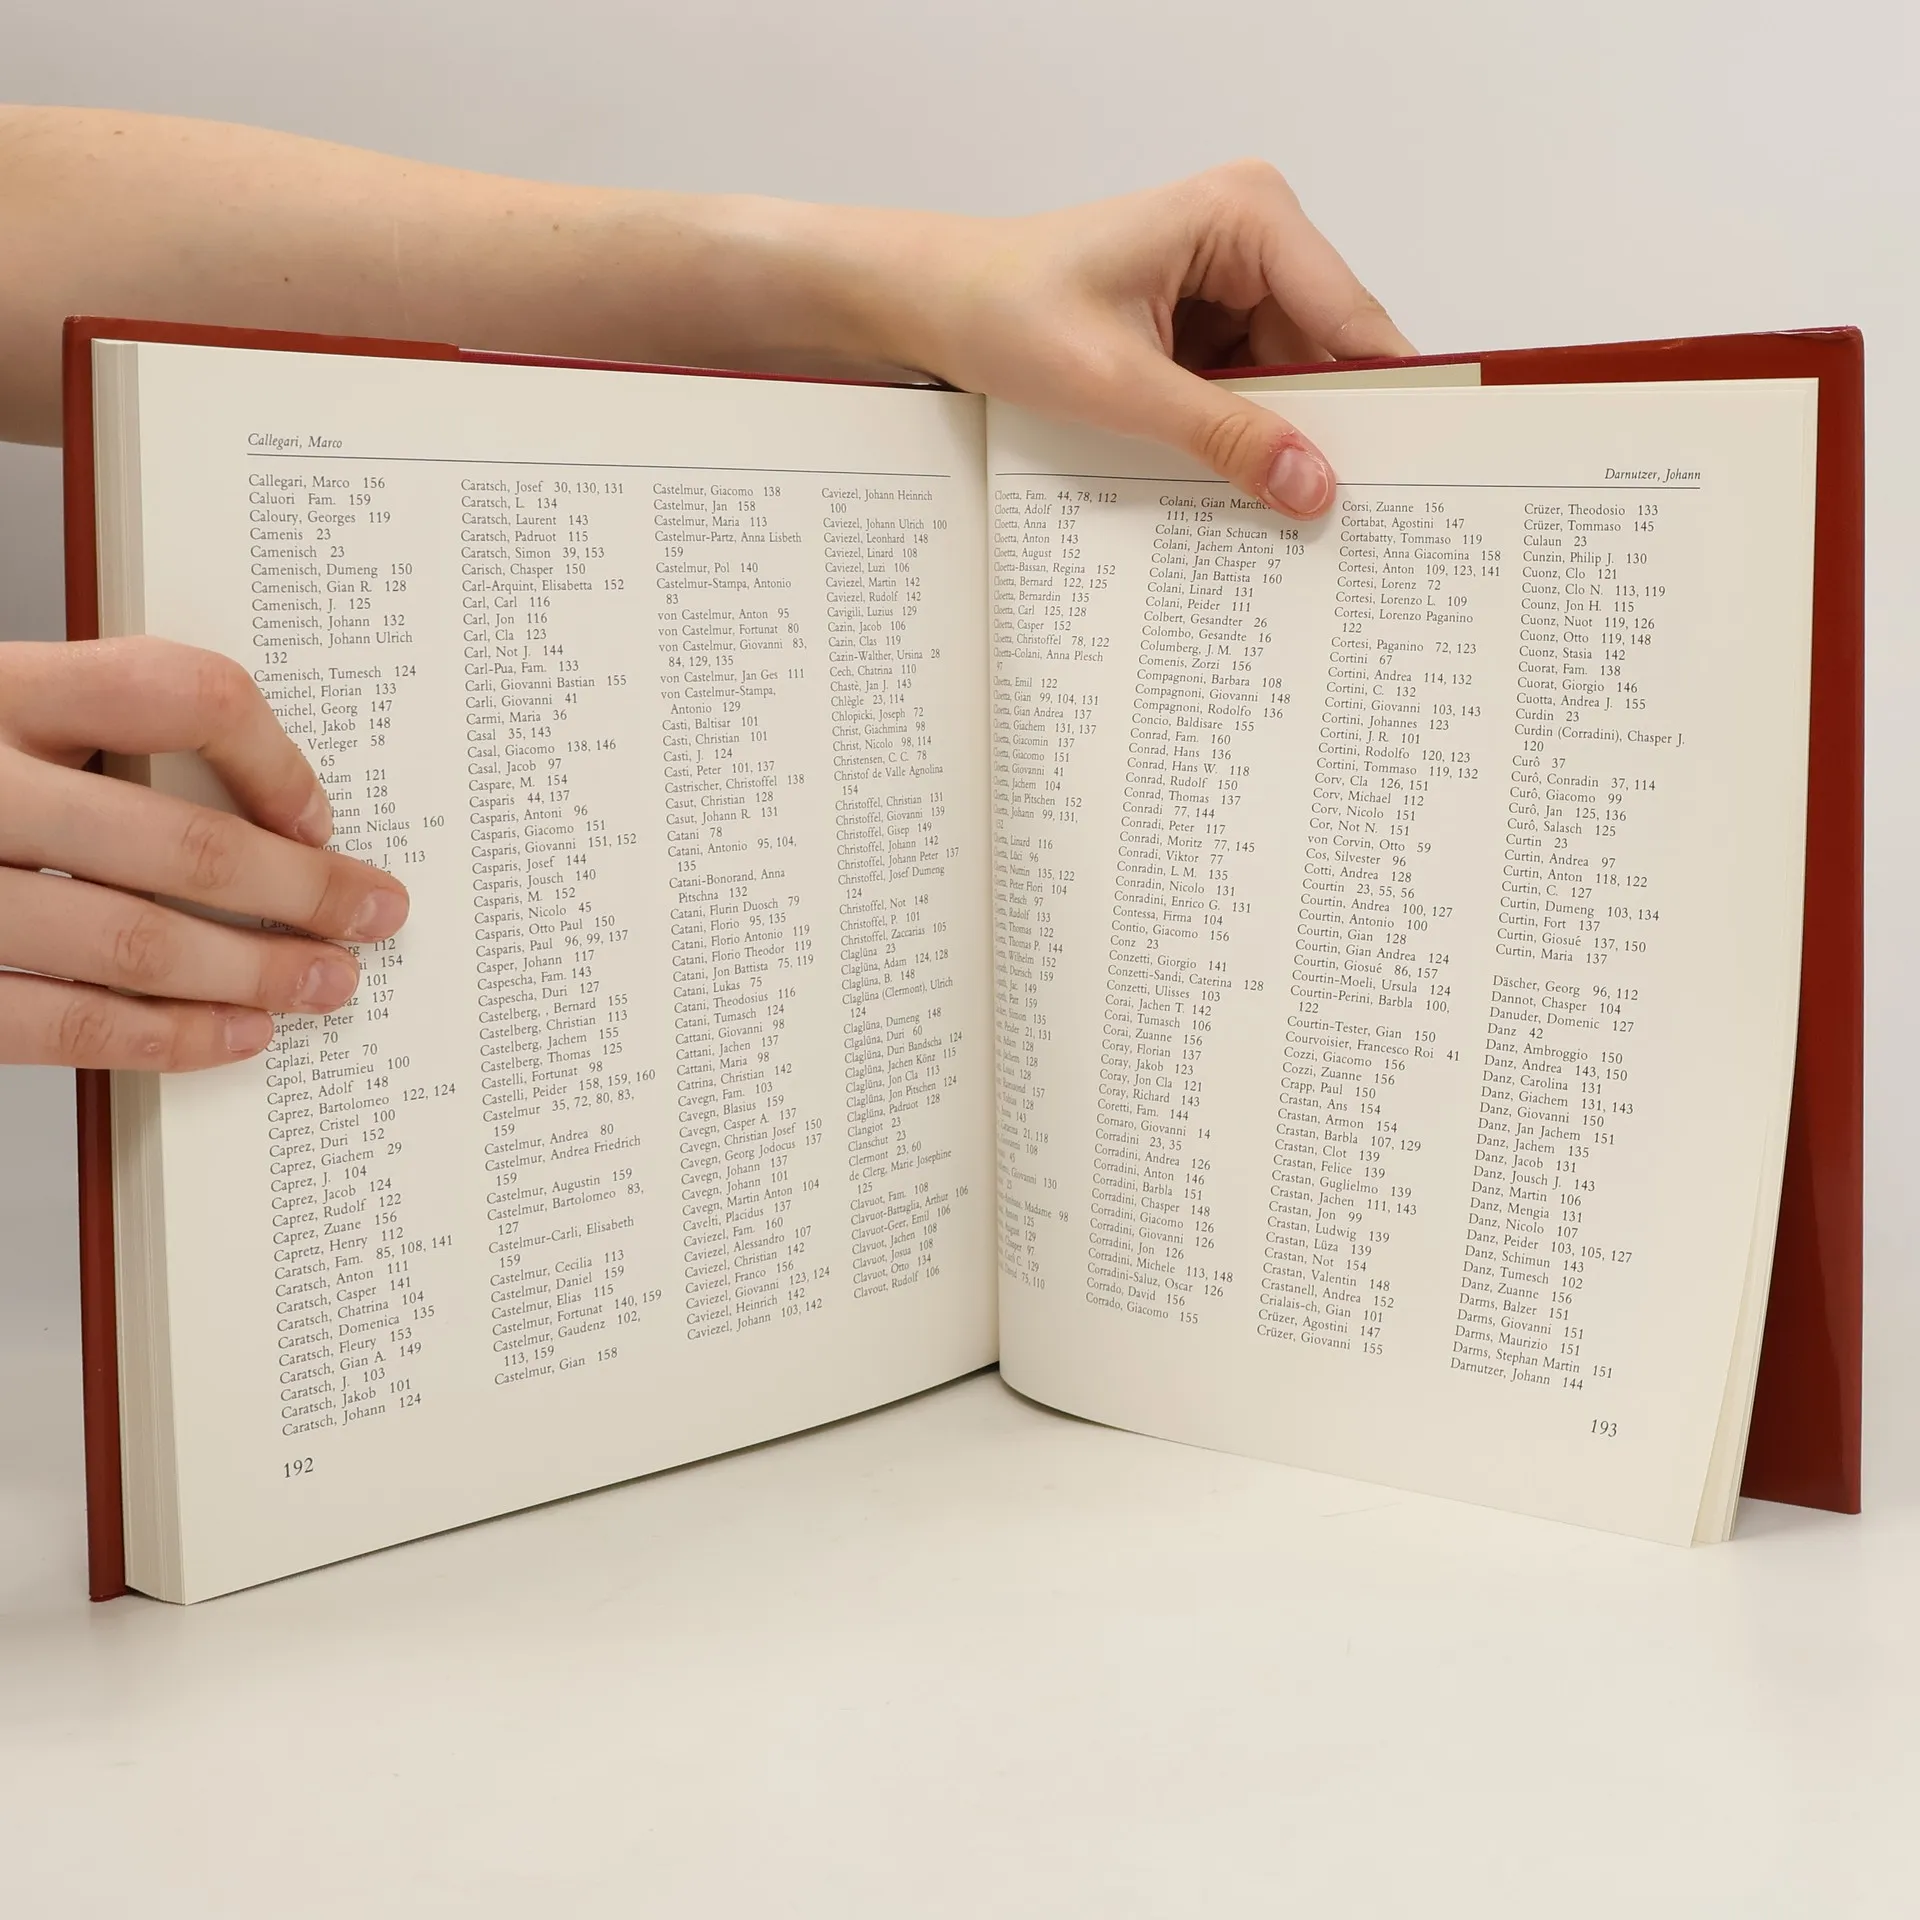 Callegari, Marco
Callegari, Marco 156
Caluori Fam. 159
Caloury, Georges 119
Camenis 23
Camenisch 23
Camenisch, Dumeng 150
Camenisch, Gian R. 128
Camenisch, J. 125
Camenisch, Johann 132
Camenisch, Johann Ulrich
132
Camenisch, Tumesch 124
Florian 133
Georg 147
Jakob 148
Verleger 58
65
Adam 121
128
160
Niclaus 160
Clos 106
J. 113
112
154
101
137
Peter 104
Caplazi 70
Caplazi, Peter 70
Capol, Batrumieu 100
Caprez, Adolf 148
Caprez, Bartolomeo 122, 124
Caprez, Cristel 100
Caprez, Duri 152
Caprez, Giachem 29
Caprez, J. 104
Caprez, Jacob 124
Caprez, Rudolf 122
Caprez, Zuane 156
Capretz, Henry 112
Caratsch, Fam. 85, 108, 141
Caratsch, Anton 111
Caratsch, Casper 141
Caratsch, Chatrina 104
Caratsch, Domenica 135
Caratsch, Fleury 153
Caratsch, Gian A. 149
Caratsch, J. 103
Caratsch, Jakob 101
Caratsch, Johann 124
Caratsch, Josef 30, 130, 131
Caratsch, L. 134
Caratsch, Laurent 143
Caratsch, Padruot 115
Caratsch, Simon 39, 153
Carisch, Chasper 150
Carl-Arquint, Elisabetta 152
Carl, Carl 116
Carl, Jon 116
Carl, Cla 123
Carl, Not J. 144
Carl-Pua, Fam. 133
Carli, Giovanni Bastian 155
Carli, Giovanni 41
Carmi, Maria 36
Casal 35, 143
Casal, Giacomo 138, 146
Casal, Jacob 97
Caspare, M. 154
Casparis 44, 137
Casparis, Antoni 96
Casparis, Giacomo 151
Casparis, Giovanni 151, 152
Casparis, Josef 144
Casparis, Jousch 140
Casparis, M. 152
Casparis, Nicolo 45
Casparis, Otto Paul 150
Casparis, Paul 96, 99, 137
Casper, Johann 117
Caspescha, Fam. 143
Caspescha, Duri 127
Castelberg, , Bernard 155
Castelberg, Christian 113
Castelberg, Jachem 155
Castelberg, Thomas 125
Castelli, Fortunat 98
Castelli, Peider 158, 159, 160
Castelmur 35, 72, 80, 83,
159
Castelmur, Andrea 80
Castelmur, Andrea Friedrich
159
Castelmur, Augustin 159
Castelmur, Bartolomeo 83,
127
Castelmur-Carli, Elisabeth
159
Castelmur, Cecilia 113
Castelmur, Daniel 159
Castelmur, Elias 115
Castelmur, Fortunat 140, 159
Castelmur, Gaudenz 102,
113, 159
Castelmur, Gian 158
Castelmur, Giacomo 138
Castelmur, Jan 158
Castelmur, Maria 113
Castelmur-Partz, Anna Lisbeth
159
Castelmur, Pol 140
Castelmur-Stampa, Antonio
83
von Castelmur, Anton 95
von Castelmur, Fortunat 80
von Castelmur, Giovanni 83,
84, 129, 135
von Castelmur, Jan Ges 111
von Castelmur-Stampa,
Antonio 129
Casti, Baltisar 101
Casti, Christian 101
Casti, J. 124
Casti, Peter 101, 137
Castrischer, Christoffel 138
Casut, Christian 128
Casut, Johann R. 131
Catani 78
Catani, Antonio 95, 104,
135
Catani-Bonorand, Anna
Pitschna 132
Catani, Flurin Duosch 79
Catani, Florio 95, 135
Catani, Florio Antonio 119
Catani, Florio Theodor 119
Catani, Jon Battista 75, 119
Catani, Lukas 75
Catani, Theodosius 116
Catani, Tumasch 124
Cattani, Giovanni 98
Cattani, Jachen 137
Cattani, Maria 98
Catrina, Christian 142
Cavegn, Fam. 103
Cavegn, Blasius 159
Cavegn, Casper A. 137
Cavegn, Christian Josef 150
Cavegn, Georg Jodocus 137
Cavegn, Johann 137
Cavegn, Johann 101
Cavegn, Martin Anton 104
Cavelti, Placidus 137
Caviezel, Fam. 160
Caviezel, Alessandro 107
Caviezel, Christian 142
Caviezel, Franco 156
Caviezel, Giovanni 123, 124
Caviezel, Heinrich 142
Caviezel, Johann 103, 142
Caviezel, Johann Heinrich
100
Caviezel, Johann Ulrich 100
Caviezel, Leonhard 148
Caviezel, Linard 108
Caviezel, Luzi 106
Caviezel, Martin 142
Caviezel, Rudolf 142
Cavigili, Luzius 129
Cazin, Jacob 106
Cazin, Clas 119
Cazin-Walther, Ursina 28
Cech, Chatrina 110
Chastè, Jan J. 143
Chlègle 23, 114
Chlopicki, Joseph 72
Christ, Giachmina 98
Christ, Nicolo 98, 114
Christensen, C. C. 78
Christof de Valle Agnolina
154
Christoffel, Christian 131
Christoffel, Giovanni 139
Christoffel, Gisep 149
Christoffel, Johann 142
Christoffel, Johann Peter 137
Christoffel, Josef Dumeng
124
Christoffel, Not 148
Christoffel, P. 101
Christoffel, Zaccarias 105
Claglüna 23
Claglüna, Adam 124, 128
Claglüna, B. 148
Claglüna (Clermont), Ulrich
124
Claglüna, Dumeng 148
Clgalüna, Duri 60
Claglüna, Duri Bandscha 124
Claglüna, Jachen Könz 115
Claglüna, Jon Cla 113
Claglüna, Jon Pitschen 124
Claglüna, Padruot 128
Clangiot 23
Clanschut 23
Clermont 23, 60
de Clerg, Marie Josephine
125
Clavuot, Fam. 108
Clavuot-Battaglia, Arthur 106
Clavuot-Geer, Emil 106
Clavuot, Jachen 108
Clavuot, Josua 108
Clavuot, Otto 134
Clavout, Rudolf 106
192
Darnutzer, Johann
Cloetta, Fam. 44, 78, 112
Cloetta, Adolf 137
Cloetta, Anna 137
Cloetta, Anton 143
Cloetta, August 152
Cloetta-Bassan, Regina 152
Cloetta, Bernard 122, 125
Cloetta, Bernardin 135
Cloetta, Carl 125, 128
Cloetta, Casper 152
Cloetta, Christoffel 78, 122
Cloetta-Colani, Anna Plesch
97
Cloetta, Emil 122
Cloetta, Gian 99, 104, 131
Cloetta, Gian Andrea 137
Cloetta, Giachem 131, 137
Cloetta, Giacomin 137
Cloetta, Giacomo 151
Cloetta, Giovanni 41
Cloetta, Jachem 104
Cloetta, Jan Pitschen 152
Cloetta, Johann 99, 131,
152
Linard 116
96
135, 122
Peter Flori 104
97
Rudolf 133
Thomas 122
Thomas P. 144
Wilhelm 152
159
149
159
135
21, 131
128
128
128
157
128
143
21, 118
108
Giovanni 130
Madame 98
125
129
97
129
75, 110
Colani, Gian
111, 125
Colani, Gian Schucan 158
Colani, Jachem Antoni 103
Colani, Jan Chasper 97
Colani, Jan Battista 160
Colani, Linard 131
Colani, Peider 111
Colbert, Gesandter 26
Colombo, Gesandte 16
Columberg, J. M. 137
Comenis, Zorzi 156
Compagnoni, Barbara 108
Compagnoni, Giovanni 148
Compagnoni, Rodolfo 136
Concio, Baldisare 155
Conrad, Fam. 160
Conrad, Hans 136
Conrad, Hans W. 118
Conrad, Rudolf 150
Conrad, Thomas 137
Conradi 77, 144
Conradi, Peter 117
Conradi, Moritz 77, 145
Conradi, Viktor 77
Conradin, L. M. 135
Conradin, Nicolo 131
Conradini, Enrico G. 131
Contessa, Firma 104
Contio, Giacomo 156
Conz 23
Conzetti, Giorgio 141
Conzetti-Sandi, Caterina 128
Conzetti, Ulisses 103
Corai, Jachen T. 142
Corai, Tumasch 106
Corai, Zuanne 156
Coray, Florian 137
Coray, Jakob 123
Coray, Jon Cla 121
Coray, Richard 143
Coretti, Fam. 144
Cornaro, Giovanni 14
Corradini 23, 35
Corradini, Andrea 126
Corradini, Anton 146
Corradini, Barbla 151
Corradini, Chasper 148
Corradini, Giacomo 126
Corradini, Giovanni 126
Corradini, Jon 126
Corradini, Michele 113, 148
Corradini-Saluz, Oscar 126
Corrado, David 156
Corrado, Giacomo 155
Corsi, Zuanne 156
Cortabat, Agostini 147
Cortabatty, Tommaso 119
Cortesi, Anna Giacomina 158
Cortesi, Anton 109, 123, 141
Cortesi, Lorenz 72
Cortesi, Lorenzo L. 109
Cortesi, Lorenzo Paganino
122
Cortesi, Paganino 72, 123
Cortini 67
Cortini, Andrea 114, 132
Cortini, C. 132
Cortini, Giovanni 103, 143
Cortini, Johannes 123
Cortini, J. R. 101
Cortini, Rodolfo 120, 123
Cortini, Tommaso 119, 132
Corv, Cla 126, 151
Corv, Michael 112
Corv, Nicolo 151
Cor, Not N. 151
von Corvin, Otto 59
Cos, Silvester 96
Cotti, Andrea 128
Courtin 23, 55, 56
Courtin, Andrea 100, 127
Courtin, Antonio 100
Courtin, Gian 128
Courtin, Gian Andrea 124
Courtin, Giosué 86, 157
Courtin-Moeli, Ursula 124
Courtin-Perini, Barbla 100,
122
Courtin-Tester, Gian 150
Courvoisier, Francesco Roi 41
Cozzi, Giacomo 156
Cozzi, Zuanne 156
Crapp, Paul 150
Crastan, Ans 154
Crastan, Armon 154
Crastan, Barbla 107, 129
Crastan, Clot 139
Crastan, Felice 139
Crastan, Guglielmo 139
Crastan, Jachen 111, 143
Crastan, Jon 99
Crastan, Ludwig 139
Crastan, Lüza 139
Crastan, Not 154
Crastan, Valentin 148
Crastanell, Andrea 152
Crialais-ch, Gian 101
Crüzer, Agostini 147
Crüzer, Giovanni 155
Crüzer, Theodosio 133
Crüzer, Tommaso 145
Culaun 23
Cunzin, Philip J. 130
Cuonz, Clo 121
Cuonz, Clo N. 113, 119
Counz, Jon H. 115
Cuonz, Nuot 119, 126
Cuonz, Otto 119, 148
Cuonz, Stasia 142
Cuorat, Fam. 138
Cuorat, Giorgio 146
Cuotta, Andrea J. 155
Curdin 23
Curdin (Corradini), Chasper J.
120
Curô 37
Curô, Conradin 37, 114
Curô, Giacomo 99
Curô, Jan 125, 136
Curô, Salasch 125
Curtin 23
Curtin, Andrea 97
Curtin, Anton 118, 122
Curtin, C. 127
Curtin, Dumeng 103, 134
Curtin, Fort 137
Curtin, Giosué 137, 150
Curtin, Maria 137
Däscher, Georg 96, 112
Dannot, Chasper 104
Danuder, Domenic 127
Danz 42
Danz, Ambroggio 150
Danz, Andrea 143, 150
Danz, Carolina 131
Danz, Giachem 131, 143
Danz, Giovanni 150
Danz, Jan Jachem 151
Danz, Jachem 135
Danz, Jacob 131
Danz, Jousch J. 143
Danz, Martin 106
Danz, Mengia 131
Danz, Nicolo 107
Danz, Peider 103, 105, 127
Danz, Schimun 143
Danz, Tumesch 102
Danz, Zuanne 156
Darms, Balzer 151
Darms, Giovanni 151
Darms, Maurizio 151
Darms, Stephan Martin 151
Darnutzer, Johann 144
193